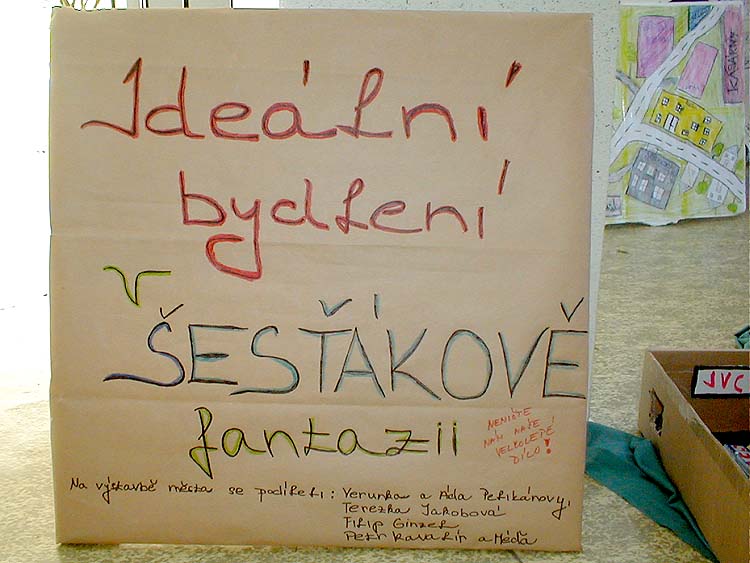 Ideální
bydlení
v
ŠESŤÁKOVĚ
fantazii
NENIČTE
NÁM NAŠE
VELKOLEPÉ
DÍLO!
Na výstavbě města se podíleli: Verunka a Áďa Pelikánovy,
Terezka Jakobová
Filip Ginzel
Petr Kavalír a Méďa
KASÁRNY
JVC